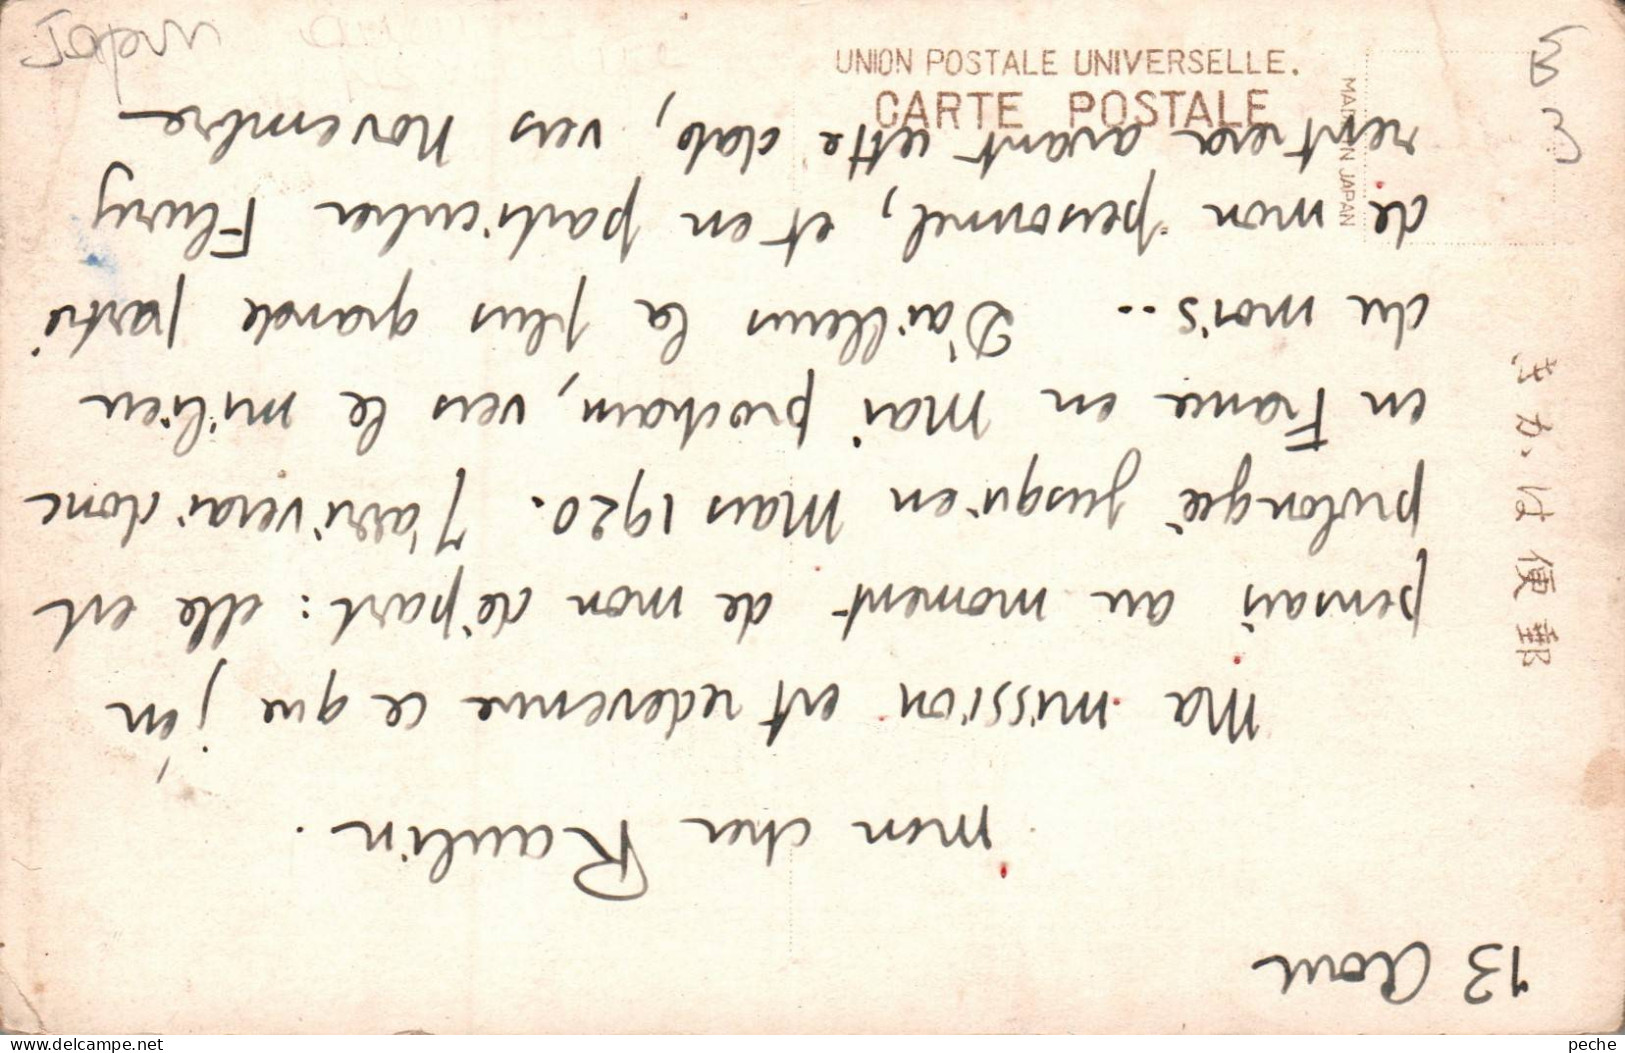 Japon
UNION POSTALE UNIVERSELLE.
CARTE POSTALE
MADE IN JAPAN
郵便はかき
13 Aout
mon cher Raulin.
Ma mission est redevenue ce que j'en
pensais au moment de mon départ : elle est
prolongée jusqu'en Mars 1920. J'arriverai donc
en France en Mai prochain, vers le milieu
du mois.. D'ailleurs la plus grande partie
de mon personnel, et en particulier Fleury
rentrera avant cette date, vers Novembre
peche